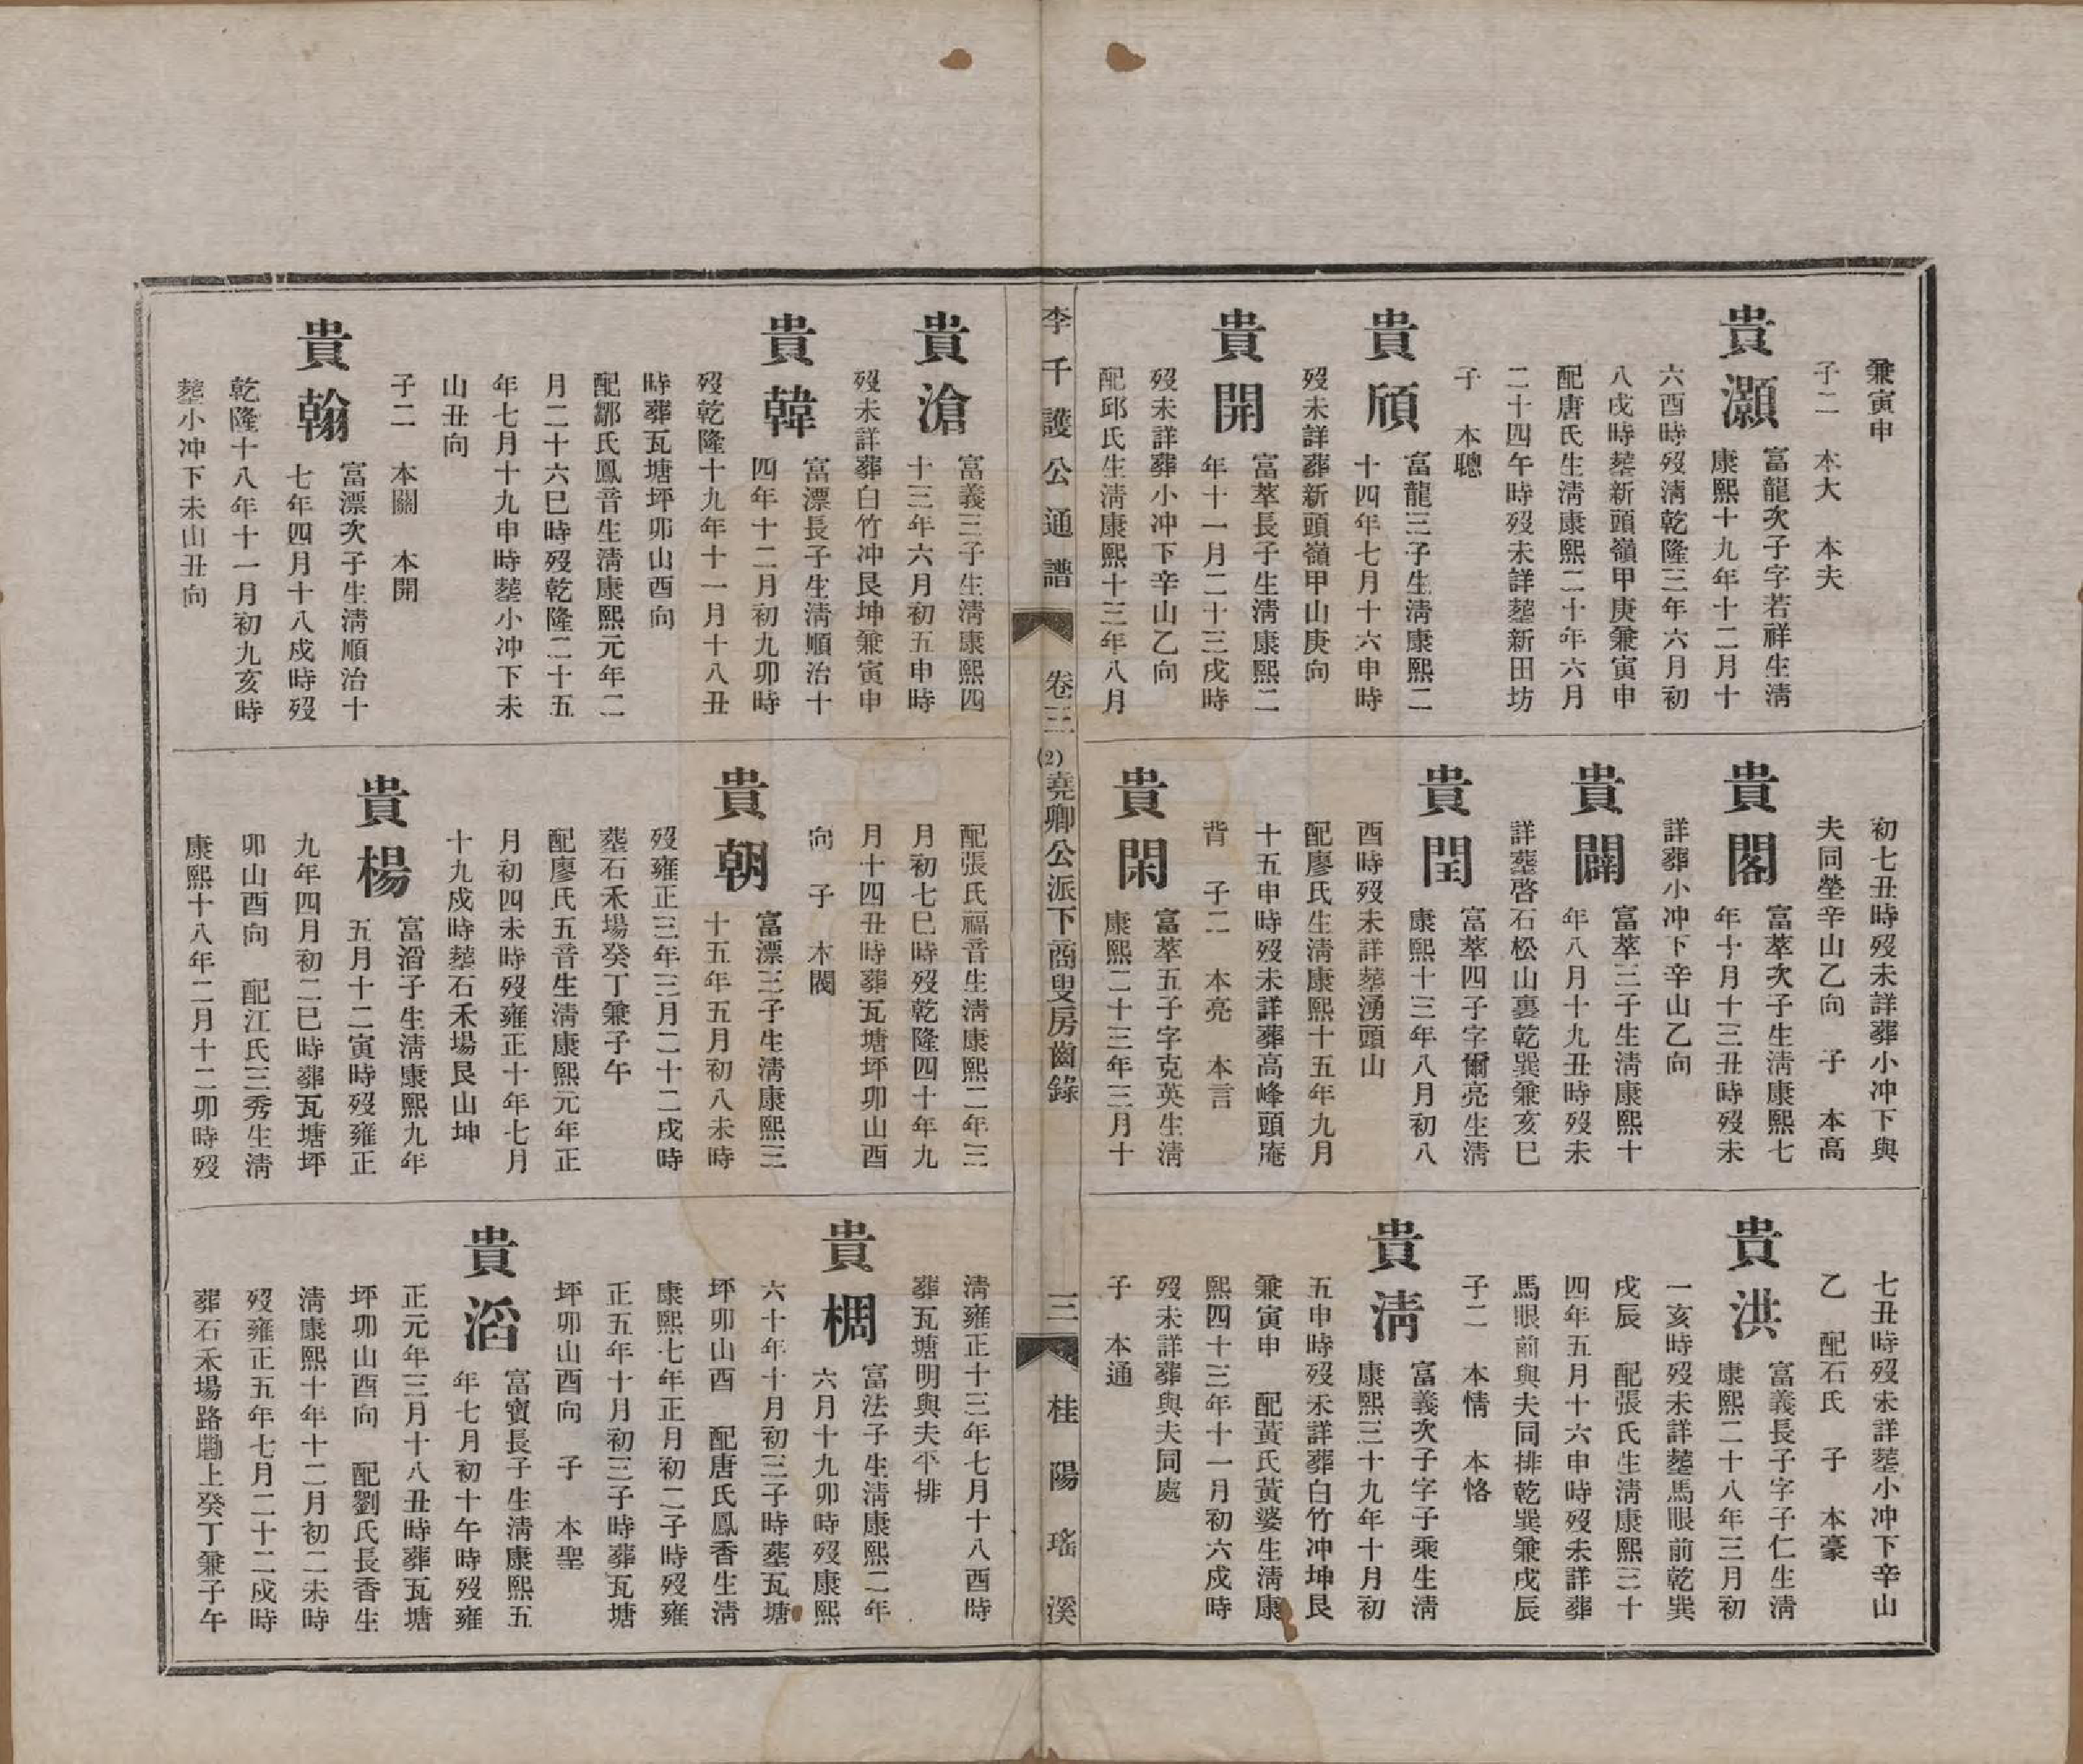 兼寅申
子二　本大　本夫
貴灝
富龍次子字若祥生淸
康熙十九年十二月十
六酉時歿淸乾隆三年六月初
八戌時塟新頭嶺甲庚兼寅申
配唐氏生淸康熙二十年六月
二十四午時歿未詳塟新田坊
子　本聰
貴頎
富龍三子生淸康熙二
十四年七月十六申時
歿未詳葬新頭嶺甲山庚向
貴開
富萃長子生淸康熙二
年十一月二十三戌時
歿未詳葬小冲下辛山乙向
配邱氏生淸康熙十三年八月
初七丑時歿未詳葬小冲下與
夫同塋辛山乙向　子　本高
貴閣
富萃次子生淸康熙七
年十月十三丑時歿未
詳葬小冲下辛山乙向
貴闢
富萃三子生淸康熙十
年八月十九丑時歿未
詳塟啓石松山裏乾巽兼亥巳
貴閏
富萃四子字爾亮生淸
康熙十三年八月初八
酉時歿未詳塟湧頭山
配廖氏生淸康熙十五年九月
十五申時歿未詳葬高峰頭庵
背　子二　本亮　本言
貴閑
富萃五子字克英生淸
康熙二十三年三月十
七丑時歿未詳塟小冲下辛山
乙　配石氏　子　本豪
貴洪
富義長子字子仁生淸
康熙二十八年三月初
一亥時歿未詳塟馬眼前乾巽
戌辰　配張氏生淸康熙三十
四年五月十六申時歿未詳葬
馬眼前與夫同排乾巽兼戌辰
子二　本情　本恪
貴淸
富義次子字子乘生淸
康熙三十九年十月初
五申時歿未詳葬白竹冲坤艮
兼寅申　配黃氏黃婆生淸康
熙四十三年十一月初六戌時
歿未詳葬與夫同處
子　本通
李千護公通譜
卷三
(2)
堯卿公派下商叟房齒錄
三
桂陽瑤溪
貴滄
富義三子生淸康熙四
十三年六月初五申時
歿未詳葬白竹冲艮坤兼寅申
貴韓
富漂長子生淸順治十
四年十二月初九卯時
歿乾隆十九年十一月十八丑
時葬瓦塘坪卯山酉向
配鄒氏鳳音生淸康熙元年二
月二十六巳時歿乾隆二十五
年七月十九申時塟小冲下未
山丑向
子二　本關　本開
貴翰
富漂次子生淸順治十
七年四月十八戌時歿
乾隆十八年十一月初九亥時
塟小冲下未山丑向
配張氏福音生淸康熙二年三
月初七巳時歿乾隆四十年九
月十四丑時葬瓦塘坪卯山酉
向　子　本閥
貴朝
富漂三子生淸康熙三
十五年五月初八未時
歿雍正三年三月二十二戌時
塟石禾場癸丁兼子午
配廖氏五音生淸康熙元年正
月初四未時歿雍正十年七月
十九戌時塟石禾場艮山坤
貴楊
富滔子生淸康熙九年
五月十二寅時歿雍正
九年四月初二巳時葬瓦塘坪
卯山酉向　配江氏三秀生淸
康熙十八年二月十二卯時歿
淸雍正十三年七月十八酉時
葬瓦塘明與夫平排
貴椆
富法子生淸康熙二年
六月十九卯時歿康熙
六十年十月初三子時塟瓦塘
坪卯山酉　配唐氏鳳香生淸
康熙七年正月初二子時歿雍
正五年十月初三子時葬瓦塘
坪卯山酉向　子　本聖
貴滔
富寶長子生淸康熙五
年七月初十午時歿雍
正元年三月十八丑時葬瓦塘
坪卯山酉向　配劉氏長香生
淸康熙十年十二月初二未時
歿雍正五年七月二十二戌時
葬石禾場路墈上癸丁兼子午